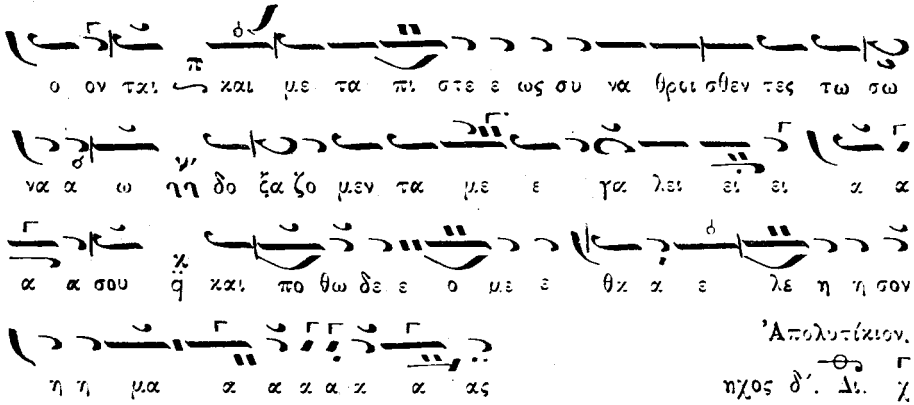 ο ον ται π και με τα πι στε ε ως συ να θροι σθεν τες τω σω
να α ω νη δο ξα ζο μεν τα με ε γα λει ει ει α α
α α σου κ q και πο θω δε ε ο με ε θα α ε λε η η σον
η η μα α α α α α α ας
Ἀπολυτίκιον.
ηχος δ´. Δι. χ